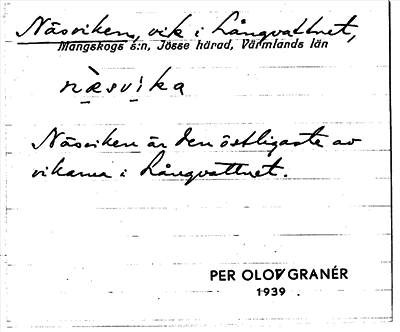 Näsviken, vik i Långvattnet,
Mangskogs s:n, Jösse härad, Värmlands län
nä̀svika
Näsviken är den östligaste av
vikarna i Långvattnet.
PER OLOV GRANÉR
1939